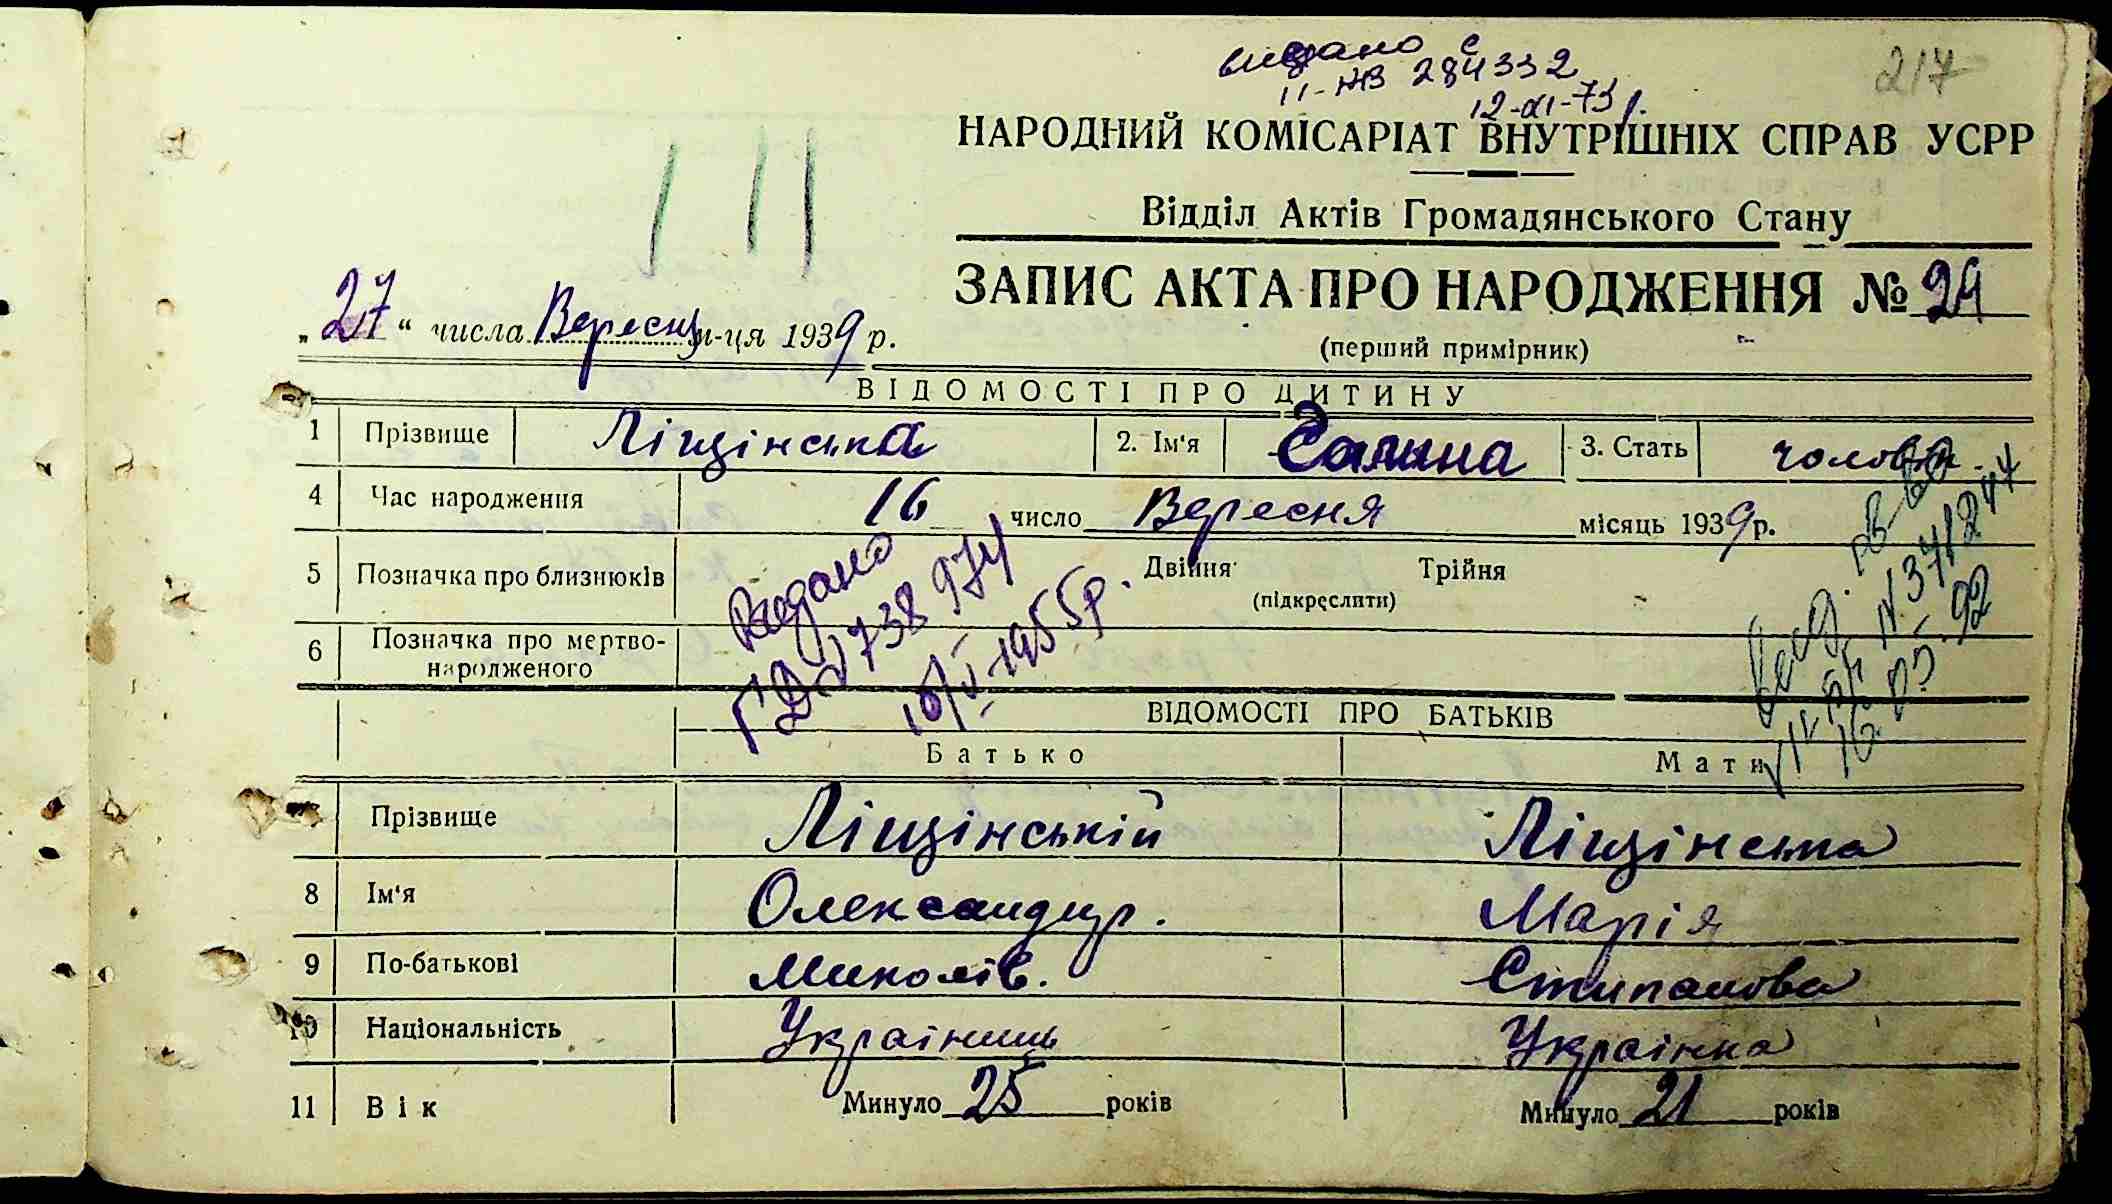 видано с
II-ЖВ 284332
12-XI-73 р.
217
НАРОДНИЙ КОМІСАРІАТ ВНУТРІШНІХ СПРАВ УСРР
Відділ Актів Громадянського Стану
ЗАПИС АКТА ПРО НАРОДЖЕННЯ № 24
(перший примірник)
„27“ числа Вересня м-ця 1939 р.
ВІДОМОСТІ ПРО ДИТИНУ
1 Прізвище Ліщінська 2. Ім'я Галина 3. Стать чолов
4 Час народження 16 число Вересня місяць 1939р.
5 Позначка про близнюків Двійня Трійня
(підкреслити)
6 Позначка про мертво-
народженого
Видано
738 974
10/V-1955р.
371247
16.05.92
ВІДОМОСТІ ПРО БАТЬКІВ
Батько Мати
7 Прізвище Ліщінській Ліщінська
8 Ім'я Олександр. Марія
9 По-батькові Миколів. Стипанова
10 Національність Українець Українка
11 Вік Минуло 25 років Минуло 21 років